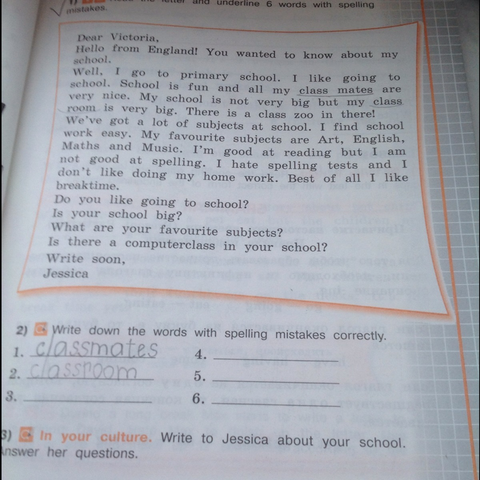 the letter and underline 6 words with spelling
mistakes.
Dear Victoria,
Hello from England! You wanted to know about my
school.
Well, I go to primary school. I like going to
school. School is fun and all my class mates are
very nice. My school is not very big but my class
room is very big. There is a class zoo in there!
We've got a lot of subjects at school. I find school
work easy. My favourite subjects are Art, English,
Maths and Music. I'm good at reading but I am
not good at spelling. I hate spelling tests and I
don't like doing my home work. Best of all I like
breaktime.
Do you like going to school?
Is your school big?
What are your favourite subjects?
Is there a computerclass in your school?
Write soon,
Jessica
2) Write down the words with spelling mistakes correctly.
1. classmates 4.
2. classroom 5.
3. 6.
3) In your culture. Write to Jessica about your school.
Answer her questions.